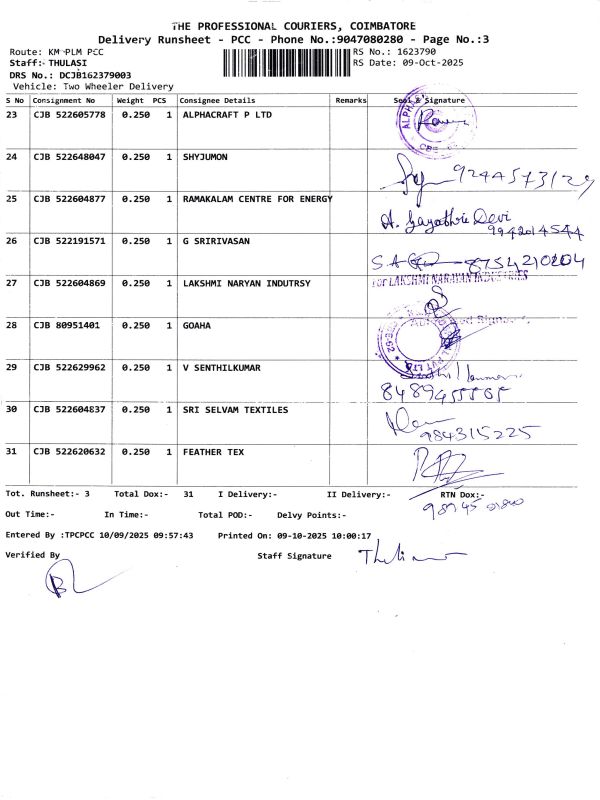 THE PROFESSIONAL COURIERS, COIMBATORE
Delivery Runsheet - PCC - Phone No.:9047080280 - Page No.:3
Route: KM PLM PCC RS No.: 1623790
Staff:- THULASI RS Date: 09-Oct-2025
DRS No.: DCJB162379003
Vehicle: Two Wheeler Delivery
S No Consignment No Weight PCS Consignee Details Remarks Seal & Signature
23 CJB 522605778 0.250 1 ALPHACRAFT P LTD
24 CJB 522648047 0.250 1 SHYJUMON
25 CJB 522604877 0.250 1 RAMAKALAM CENTRE FOR ENERGY
A. Gayathrie Devi
26 CJB 522191571 0.250 1 G SRIRIVASAN
27 CJB 522604869 0.250 1 LAKSHMI NARYAN INDUTRSY
For LAKSHMI NARAYAN INDUSTRIES
28 CJB 80951401 0.250 1 GOAHA
29 CJB 522629962 0.250 1 V SENTHILKUMAR
30 CJB 522604837 0.250 1 SRI SELVAM TEXTILES
984315225
31 CJB 522620632 0.250 1 FEATHER TEX
Tot. Runsheet:- 3 Total Dox:- 31 I Delivery:- II Delivery:- RTN Dox:-
Out Time:- In Time:- Total POD:- Delvy Points:-
Entered By :TPCPCC 10/09/2025 09:57:43 Printed On: 09-10-2025 10:00:17
Verified By Staff Signature